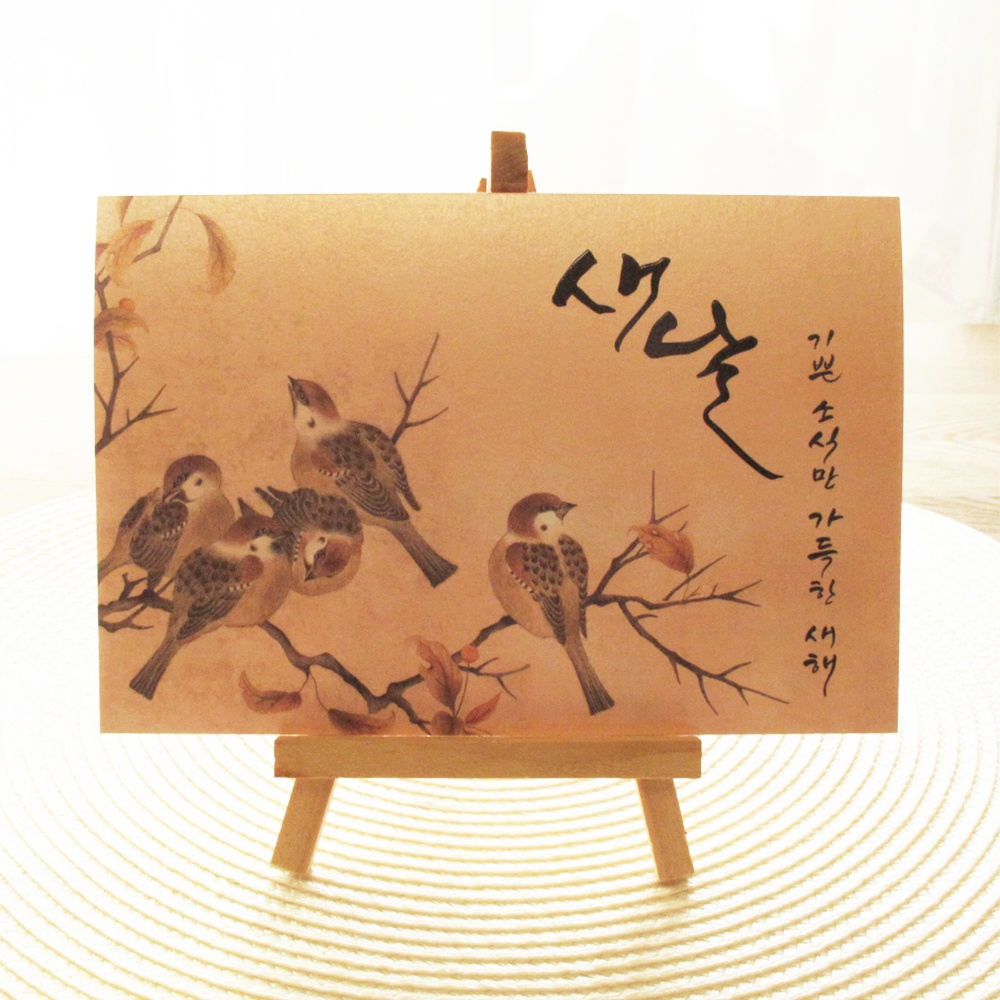 새날
기쁜 소식만 가득한 새해